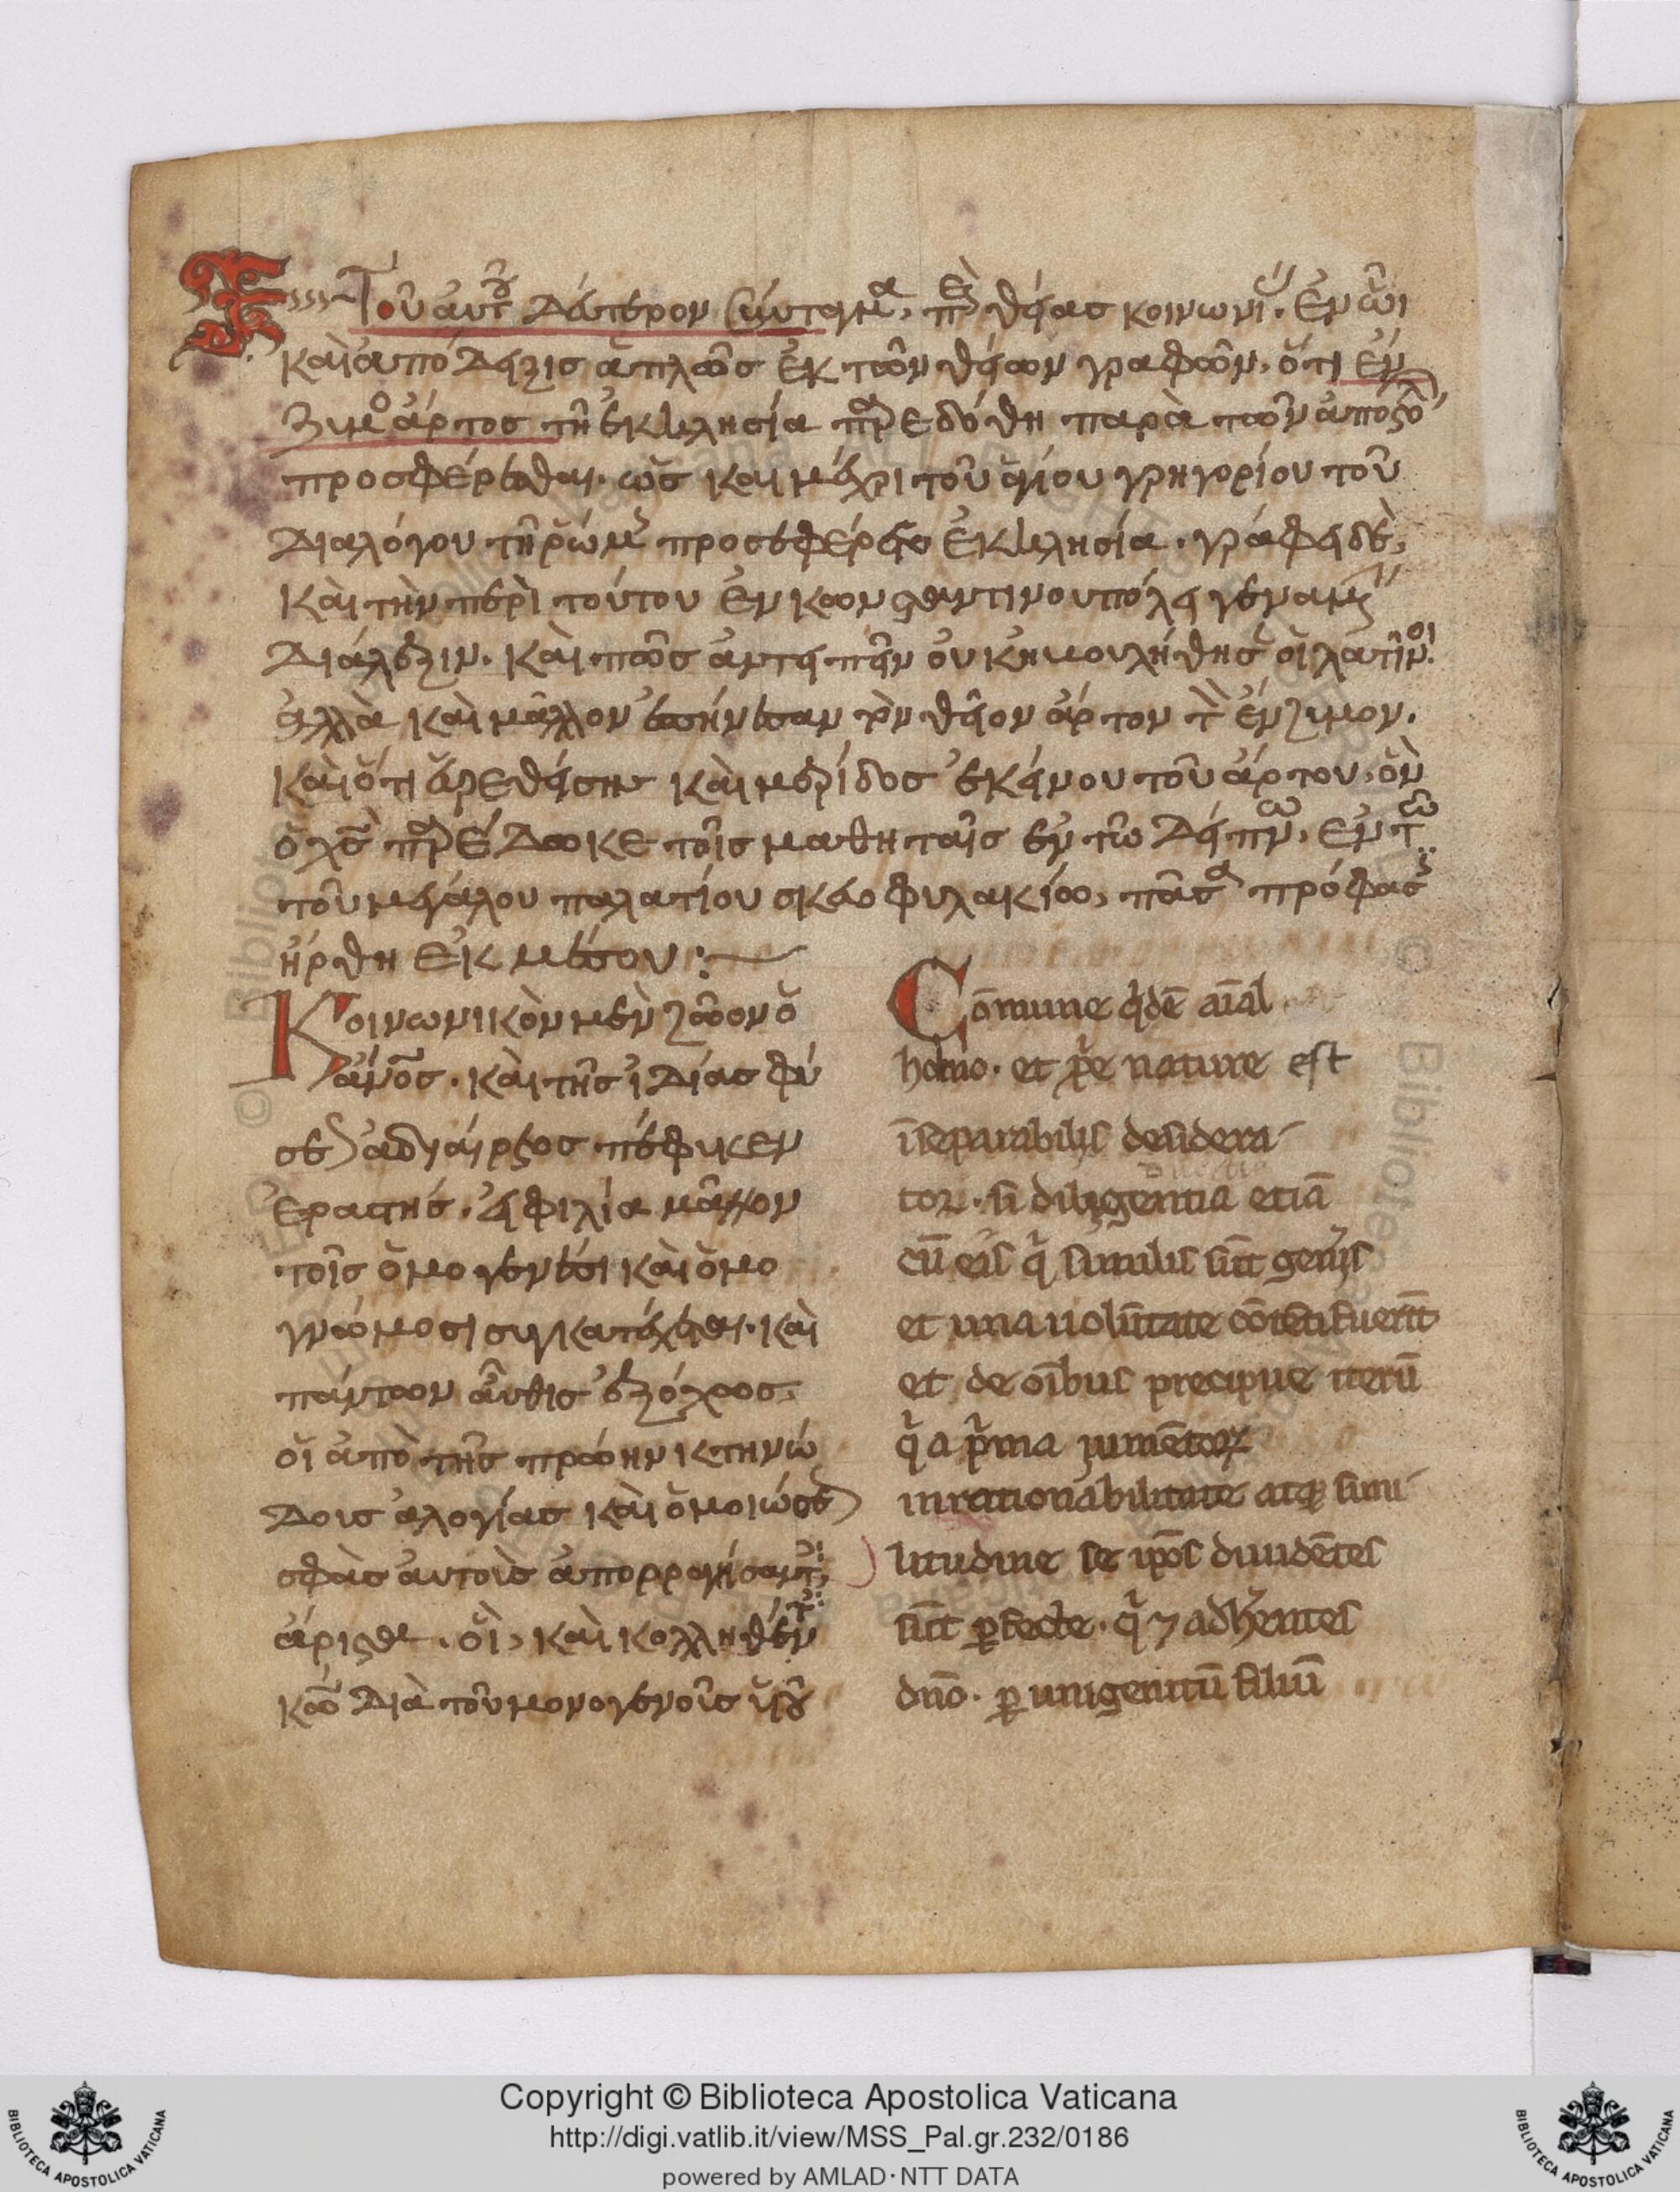 Τοῦ αὐτοῦ δεύτερον σύνταγμα, περὶ θείας κοινωνίας. ἐν ὧι
καὶ ἀπόδειξις ἁπλῶς ἐκ τῶν θείων γραφῶν, ὅτι ἔν
ζυμος ἄρτος τῆ ἐκκλησία παρεδόθη παρὰ τῶν ἀποστόλων
προσφέρεσθαι. ὡς καὶ μέχρι τοῦ ἁγίου γρηγορίου τοῦ
διαλόγου τῆ ῥώμης προσεφέρετο ἐκκλησία. γράφει δὲ,
καὶ τὴν περὶ τούτου ἐν κωνσταντινουπόλει γεναμένην
διάλεξιν. καὶ πῶς ἀντειπεῖν οὐκ ἠβουλήθησαν οἱ λατῖνοι.
ἀλλὰ καὶ μᾶλλον τὸν θεῖον ἄρτον τὸν ἔνζυμον.
καὶ ὅτι εὑρεθείσης καὶ μερίδος ἐκείνου τοῦ ἄρτου, ὃν
ὁ χς παρέδωκε τοῖς μαθηταῖς ἐν τῶ δείπνω, ἐν τῶ
τοῦ μεγάλου παλατίου σκευοφυλακίω, πᾶσα πρόφασις
ἤρθη ἐκ μέσου:
Κοινωνικὸν μὲν ζῶον ὁ
ἄνος. καὶ τῆς ἰδίας φύ
σεως ἀδιαίρετος πέφυκεν
ἐραστής. εἰ φιλία μᾶλλον
τοῖς ὁμογενέσι καὶ ὁμο
γνώμοσι συγκατέχεται. καὶ
πάντων αὖθις ἐξόχως.
οἱ ἀπὸ τῆς πρώην κτηνώ
δους ἀλογίας καὶ ὁμοιώσεως
σφὰς αὐτοὺς ἀπορραγήσαντες
ἄριστα. οἳ, καὶ κολληθέντες
κῶ διὰ τοῦ μονογενοῦς υἱοῦ
Cōmune q̇dē aīal
homo. et ꝓp̄e nature est
īseparabilis desidera-
tor. si diligentia etiā
cū eis q̇ similis sūt gen̄is
et una uolūtate cōtēti fuerīt
et de oībus precipue iterū
q̇ a p̄ma iumētoꝝ
inrationabilitate atq; simi-
litudine se ip̄os diuidētes
sūt ꝑfecte. q̇ ⁊ adh̄entes
dn̄o. ꝑ unigenitū filiū
Copyright © Biblioteca Apostolica Vaticana
http://digi.vatlib.it/view/MSS_Pal.gr.232/0186
powered by AMLAD·NTT DATA
BIBLIOTECA APOSTOLICA VATICANA
BIBLIOTECA APOSTOLICA VATICANA